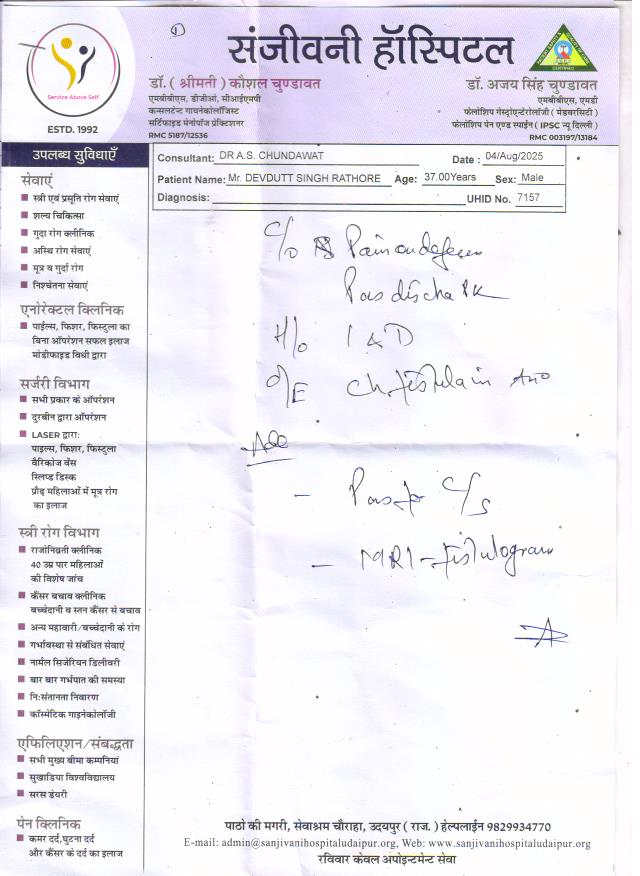 Service Above Self
ESTD. 1992
①
संजीवनी हॉस्पिटल
डॉ. ( श्रीमती ) कौशल चुण्डावत
एमबीबीएस, डीजीओ, सीआईएमपी
कन्सलटेन्ट गायनेकोलॉजिस्ट
सर्टिफाइड मेनोपॉज प्रेक्टिशनर
RMC 5187/12536
डॉ. अजय सिंह चुण्डावत
एमबीबीएस, एमडी
फेलोशिप गेस्ट्रोएन्टेरोलॉजी ( मेडवरसिटी )
फेलोशिप पेन एण्ड स्पाईन ( IPSC न्यू दिल्ली )
RMC 003197/13184
उपलब्ध सुविधाएँ
सेवाएं
स्त्री एवं प्रसूति रोग सेवाएं
शल्य चिकित्सा
गुदा रोग क्लीनिक
अस्थि रोग सेवाएं
मूत्र व गुर्दा रोग
निश्चेतना सेवाएं
एनोरेक्टल क्लिनिक
पाईल्स, फिशर, फिस्टुला का
बिना ऑपरेशन सफल इलाज
मोडीफाइड विधी द्वारा
सर्जरी विभाग
सभी प्रकार के ऑपरेशन
दुरबीन द्वारा ऑपरेशन
LASER द्वारा:
पाइल्स, फिशर, फिस्टुला
वैरिकोज वेंस
स्लिप्ड डिस्क
प्रौढ़ महिलाओं में मूत्र रोग
का इलाज
स्त्री रोग विभाग
राजोनिव्रती क्लीनिक
40 उम्र पार महिलाओं
की विशेष जांच
कैंसर बचाव क्लीनिक
बच्चेदानी व स्तन कैंसर से बचाव
अन्य महावारी/बच्चेदानी के रोग
गर्भावस्था से संबंधित सेवाएं
नार्मल सिजेरियन डिलीवरी
बार बार गर्भपात की समस्या
नि:संतानता निवारण
कॉस्मेटिक गाइनेकोलॉजी
एफिलिएशन/संबद्धता
सभी मुख्य बीमा कम्पनियां
सुखाडिया विश्वविद्यालय
सरस डेयरी
पेन क्लिनिक
कमर दर्द,घुटना दर्द
और कैंसर के दर्द का इलाज
Consultant: DR A.S. CHUNDAWAT Date : 04/Aug/2025
Patient Name: Mr. DEVDUTT SINGH RATHORE Age: 37.00Years Sex: Male
Diagnosis: UHID No. 7157
C/o Pain on
Pus discha
H/o I & D
O/E Ch. Fistula in Ano
Adv
- Pus for C/S
- MRI - Fistulogram
पाठो की मगरी, सेवाश्रम चौराहा, उदयपुर ( राज. ) हेल्पलाईन 9829934770
E-mail: admin@sanjivanihospitaludaipur.org, Web: www.sanjivanihospitaludaipur.org
रविवार केवल अपोइन्टमेन्ट सेवा